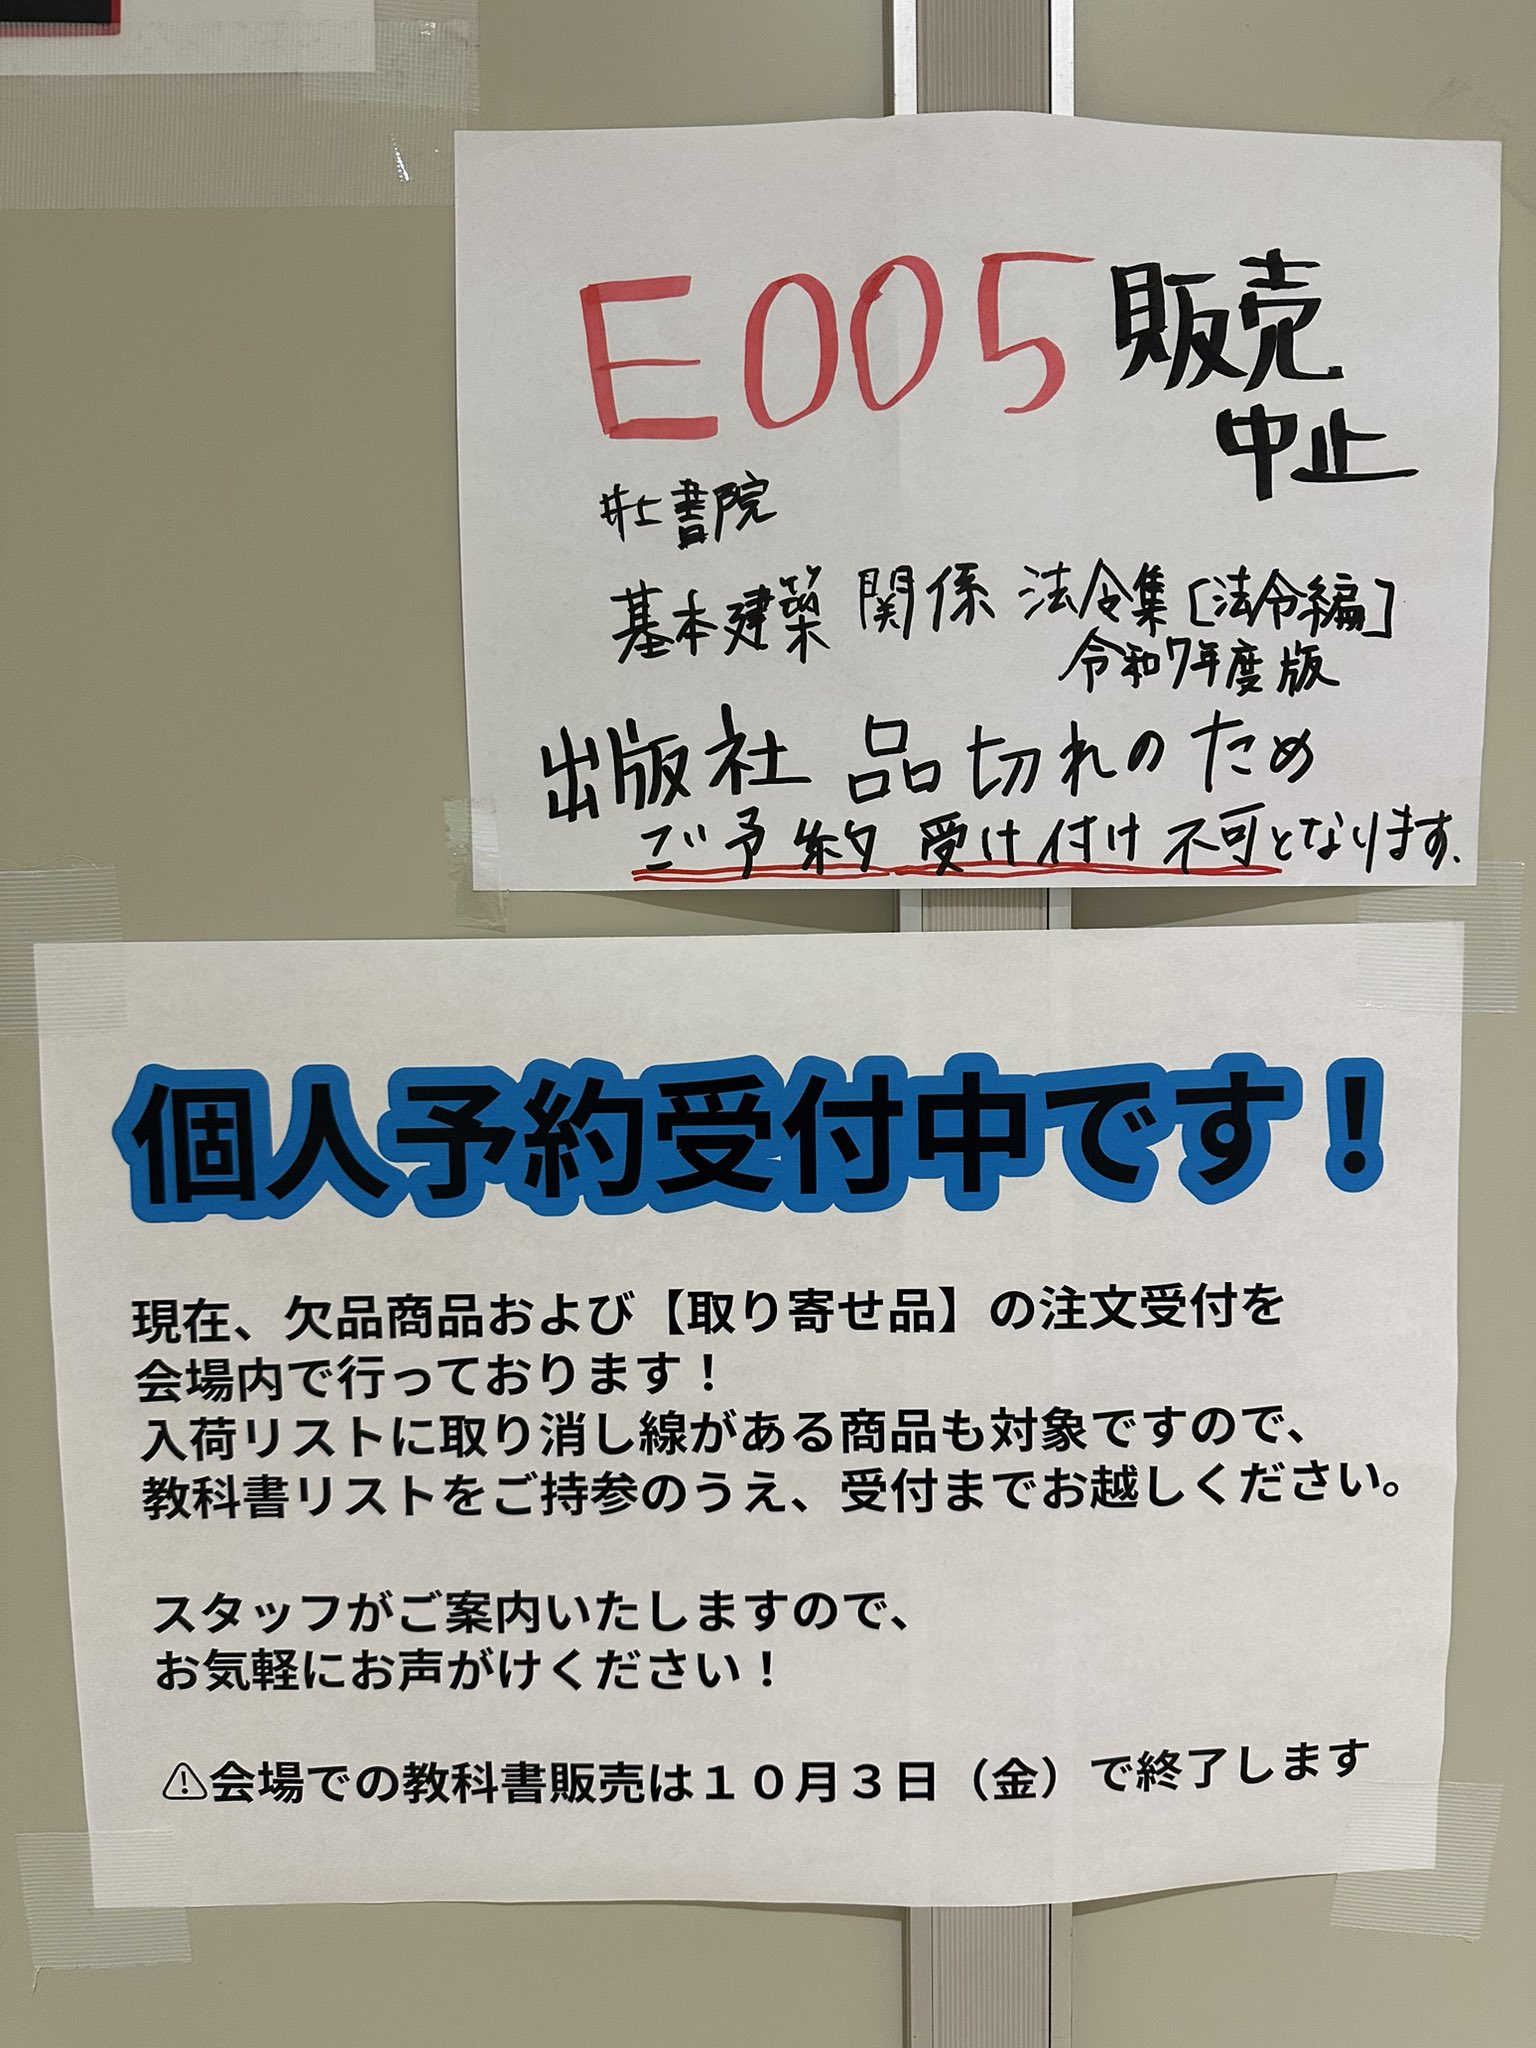 E005 販売
中止
井上書院
基本建築関係法令集[法令編]
令和7年度版
出版社品切れのため
ご予約受け付け不可となります.
個人予約受付中です！
現在、欠品商品および【取り寄せ品】の注文受付を
会場内で行っております！
入荷リストに取り消し線がある商品も対象ですので、
教科書リストをご持参のうえ、受付までお越しください。
スタッフがご案内いたしますので、
お気軽にお声がけください！
⚠会場での教科書販売は１０月３日（金）で終了します